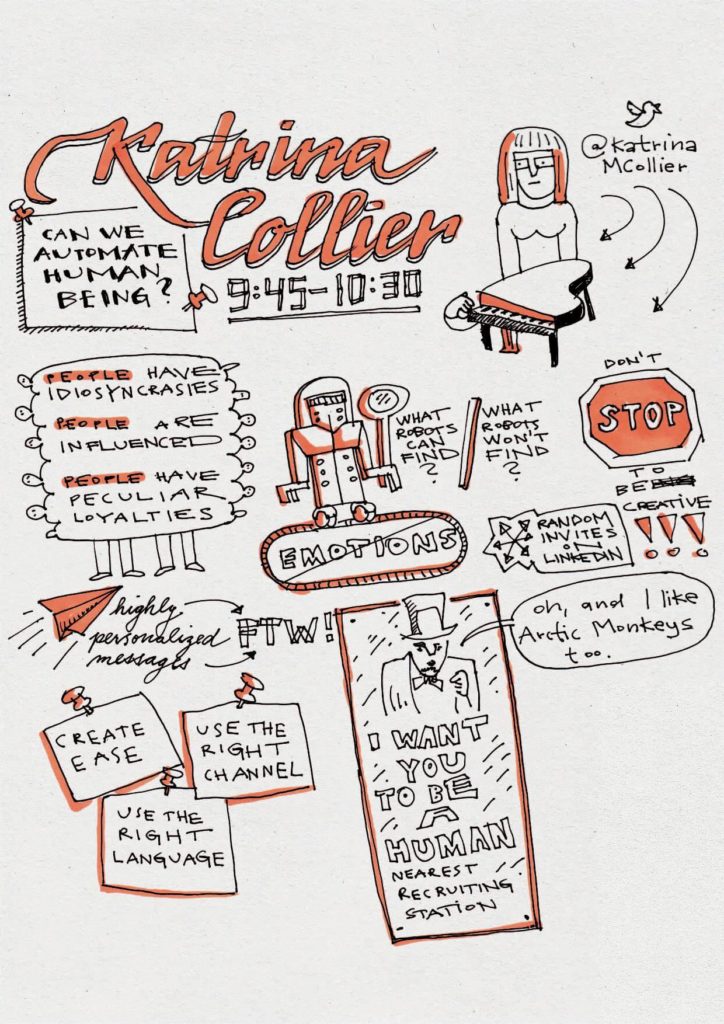 Katrina
Collier
@Katrina
MCollier
CAN WE
AUTOMATE
HUMAN
BEING?
9:45-10:30
PEOPLE HAVE
IDIOSYNCRASIES
PEOPLE ARE
INFLUENCED
PEOPLE HAVE
PECULIAR
LOYALTIES
WHAT
ROBOTS
CAN
FIND
?
WHAT
ROBOTS
WON'T
FIND
?
EMOTIONS
DON'T
STOP
TO
BE
CREATIVE
!!!
RANDOM
INVITES
ON
LINKEDIN
highly
personalized
messages
FTW!
oh, and I like
Arctic Monkeys
too.
I WANT
YOU
TO BE
A
HUMAN
NEAREST
RECRUITING
STATION
CREATE
EASE
USE THE
RIGHT
CHANNEL
USE THE
RIGHT
LANGUAGE